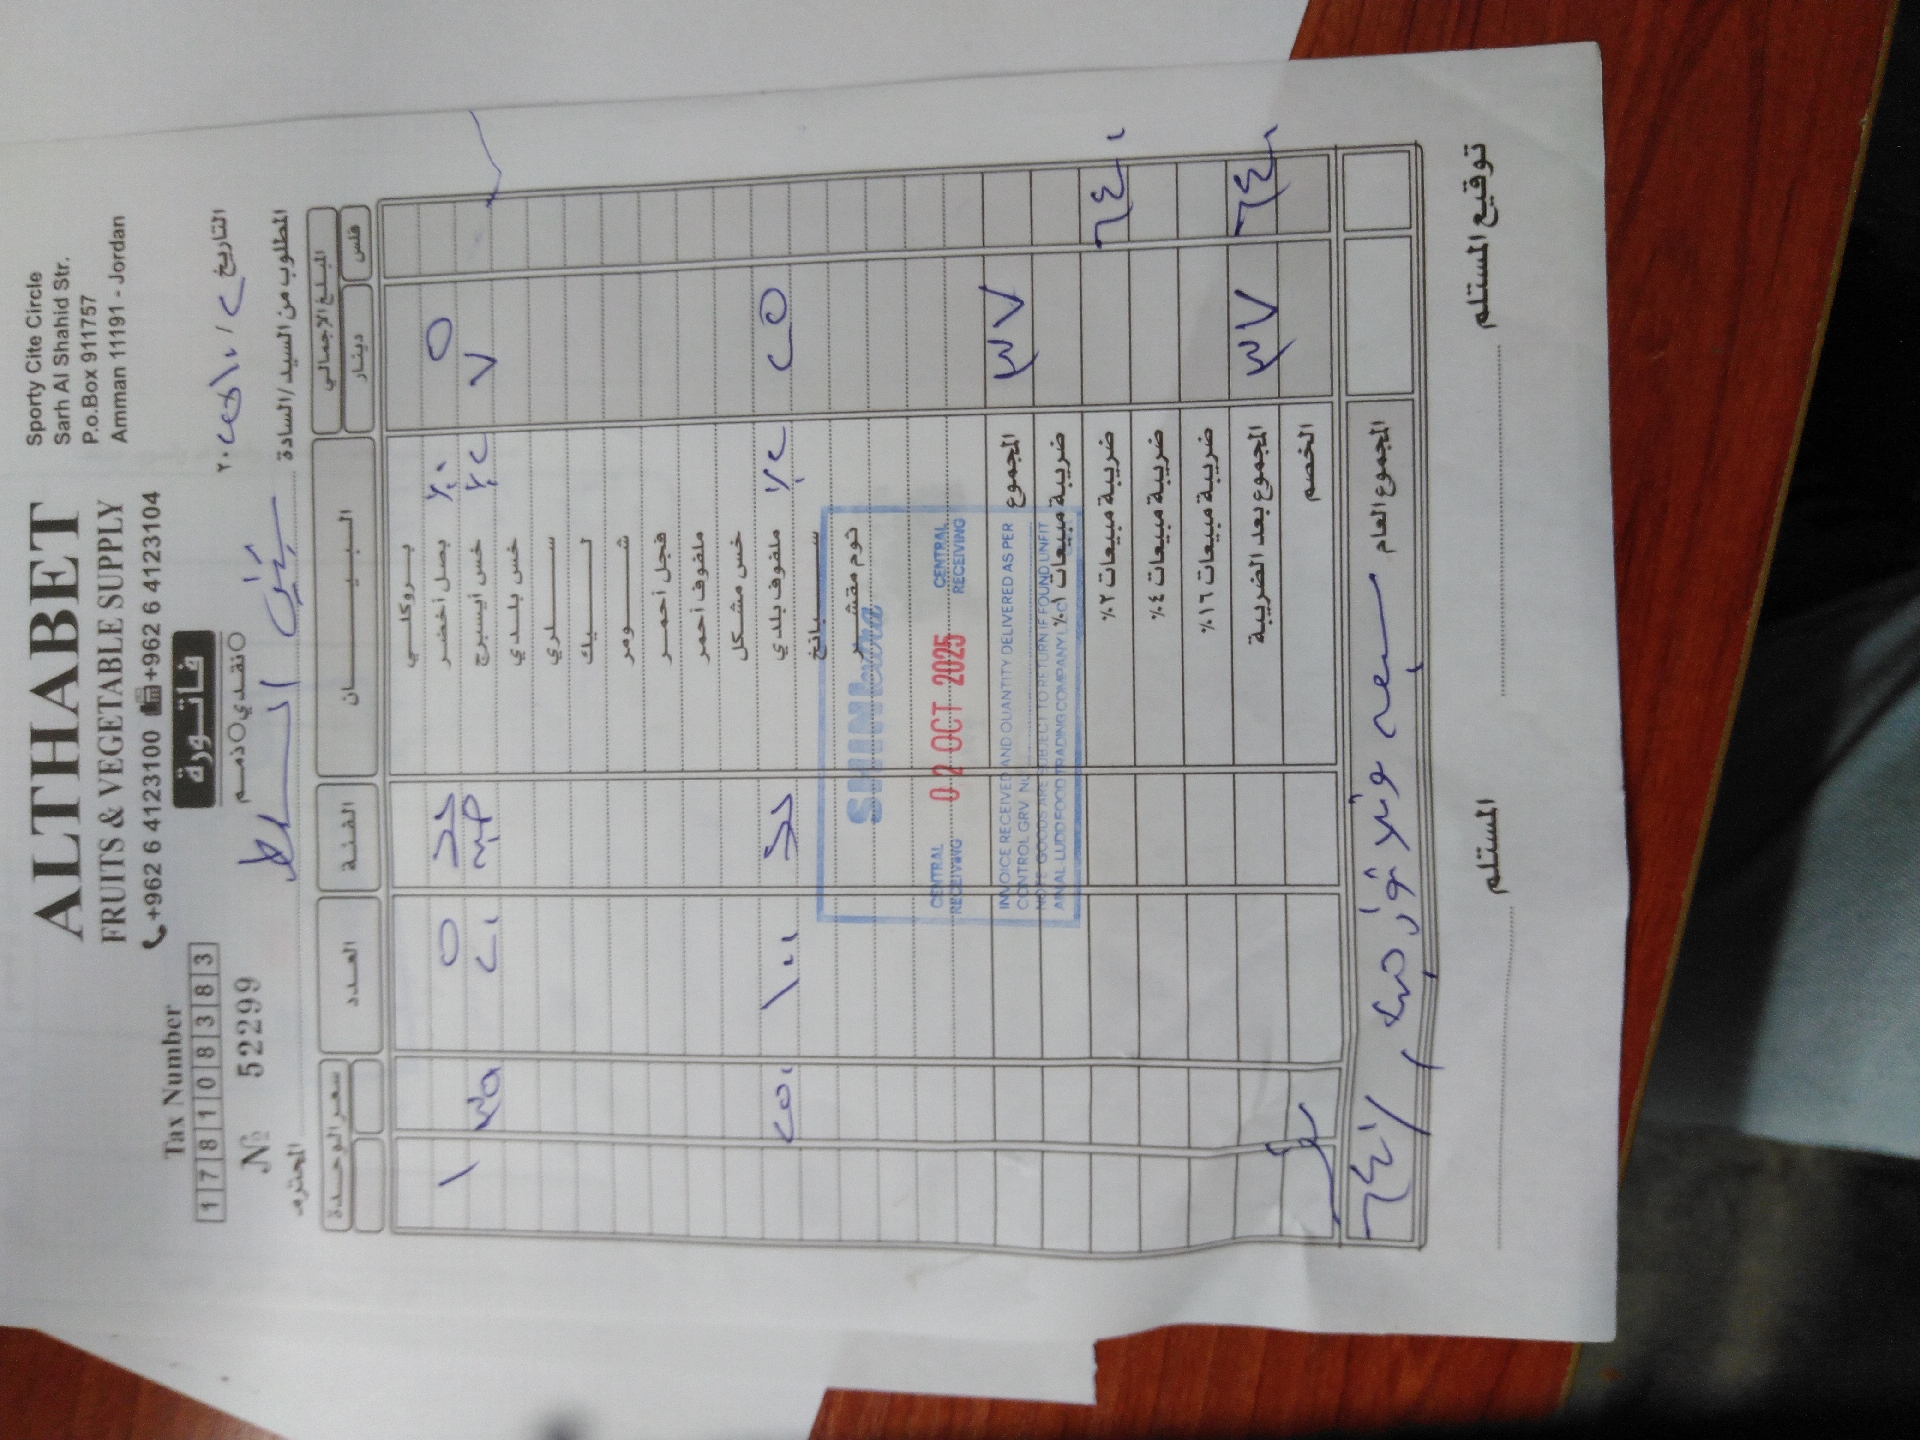 ALTHABET
FRUITS & VEGETABLE SUPPLY
+962 6 4123100 +962 6 4123104
Sporty Cite Circle
Sarh Al Shahid Str.
P.o.Box 911757
Amman 11191 - Jordan
Tax Number
178108383
№ 52299
فاتورة
نقدي ذمم
التاريخ ٢ / ١٠ / ٢٠٢٥
المطلوب من السيد/السادة
المحترم
المبلغ الإجمالي البيـــــان الفئة العدد سعر الوحدة
فلس دينار
بروكلي
٥ بصل أخضر ٪٠ ٥ ١
٧ خس أيسبرج ٪٢ ٢٠ ٣٥٠
خس بلدي
سلري
ليك
شومر
فجل أحمر
ملفوف أحمر
خس مشكل
٢٥ ملفوف بلدي ٪٢ ١٠٠ ٢٥٠
سبانخ
ثوم مقشر
CENTRAL RECEIVING 02 OCT 2025 CENTRAL RECEIVING
INVOICE RECEIVED AND QUANTITY DELIVERED AS PER
CONTROL GRV. NU
NOTE GOODS ARE SUBJECT TO RETURN IF FOUND UNFIT
٣٧ المجموع
ضريبة مبيعات ١٪
٦٤٠ ضريبة مبيعات ٢٪
ضريبة مبيعات ٤٪
ضريبة مبيعات ١٦٪
٦٤٠ ٣٧ المجموع بعد الضريبة
الخصم
المجموع العام سبعة وثلاثون دينار و ٦٤٠
توقيع المستلم
المستلم